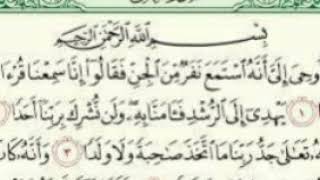 بِسْمِ ٱللَّهِ ٱلرَّحْمَٰنِ ٱلرَّحِيمِ
أُوحِىَ إِلَىَّ أَنَّهُ ٱسْتَمَعَ نَفَرٌ مِّنَ ٱلْجِنِّ فَقَالُوٓا۟ إِنَّا سَمِعْنَا قُرْءَا
١ يَهْدِىٓ إِلَى ٱلرُّشْدِ فَـَٔامَنَّا بِهِۦ وَلَن نُّشْرِكَ بِرَبِّنَآ أَحَدًا
تَعَٰلَىٰ جَدُّ رَبِّنَا مَا ٱتَّخَذَ صَٰحِبَةً وَلَا وَلَدًا ٣ وَأَنَّهُۥ كَانَ